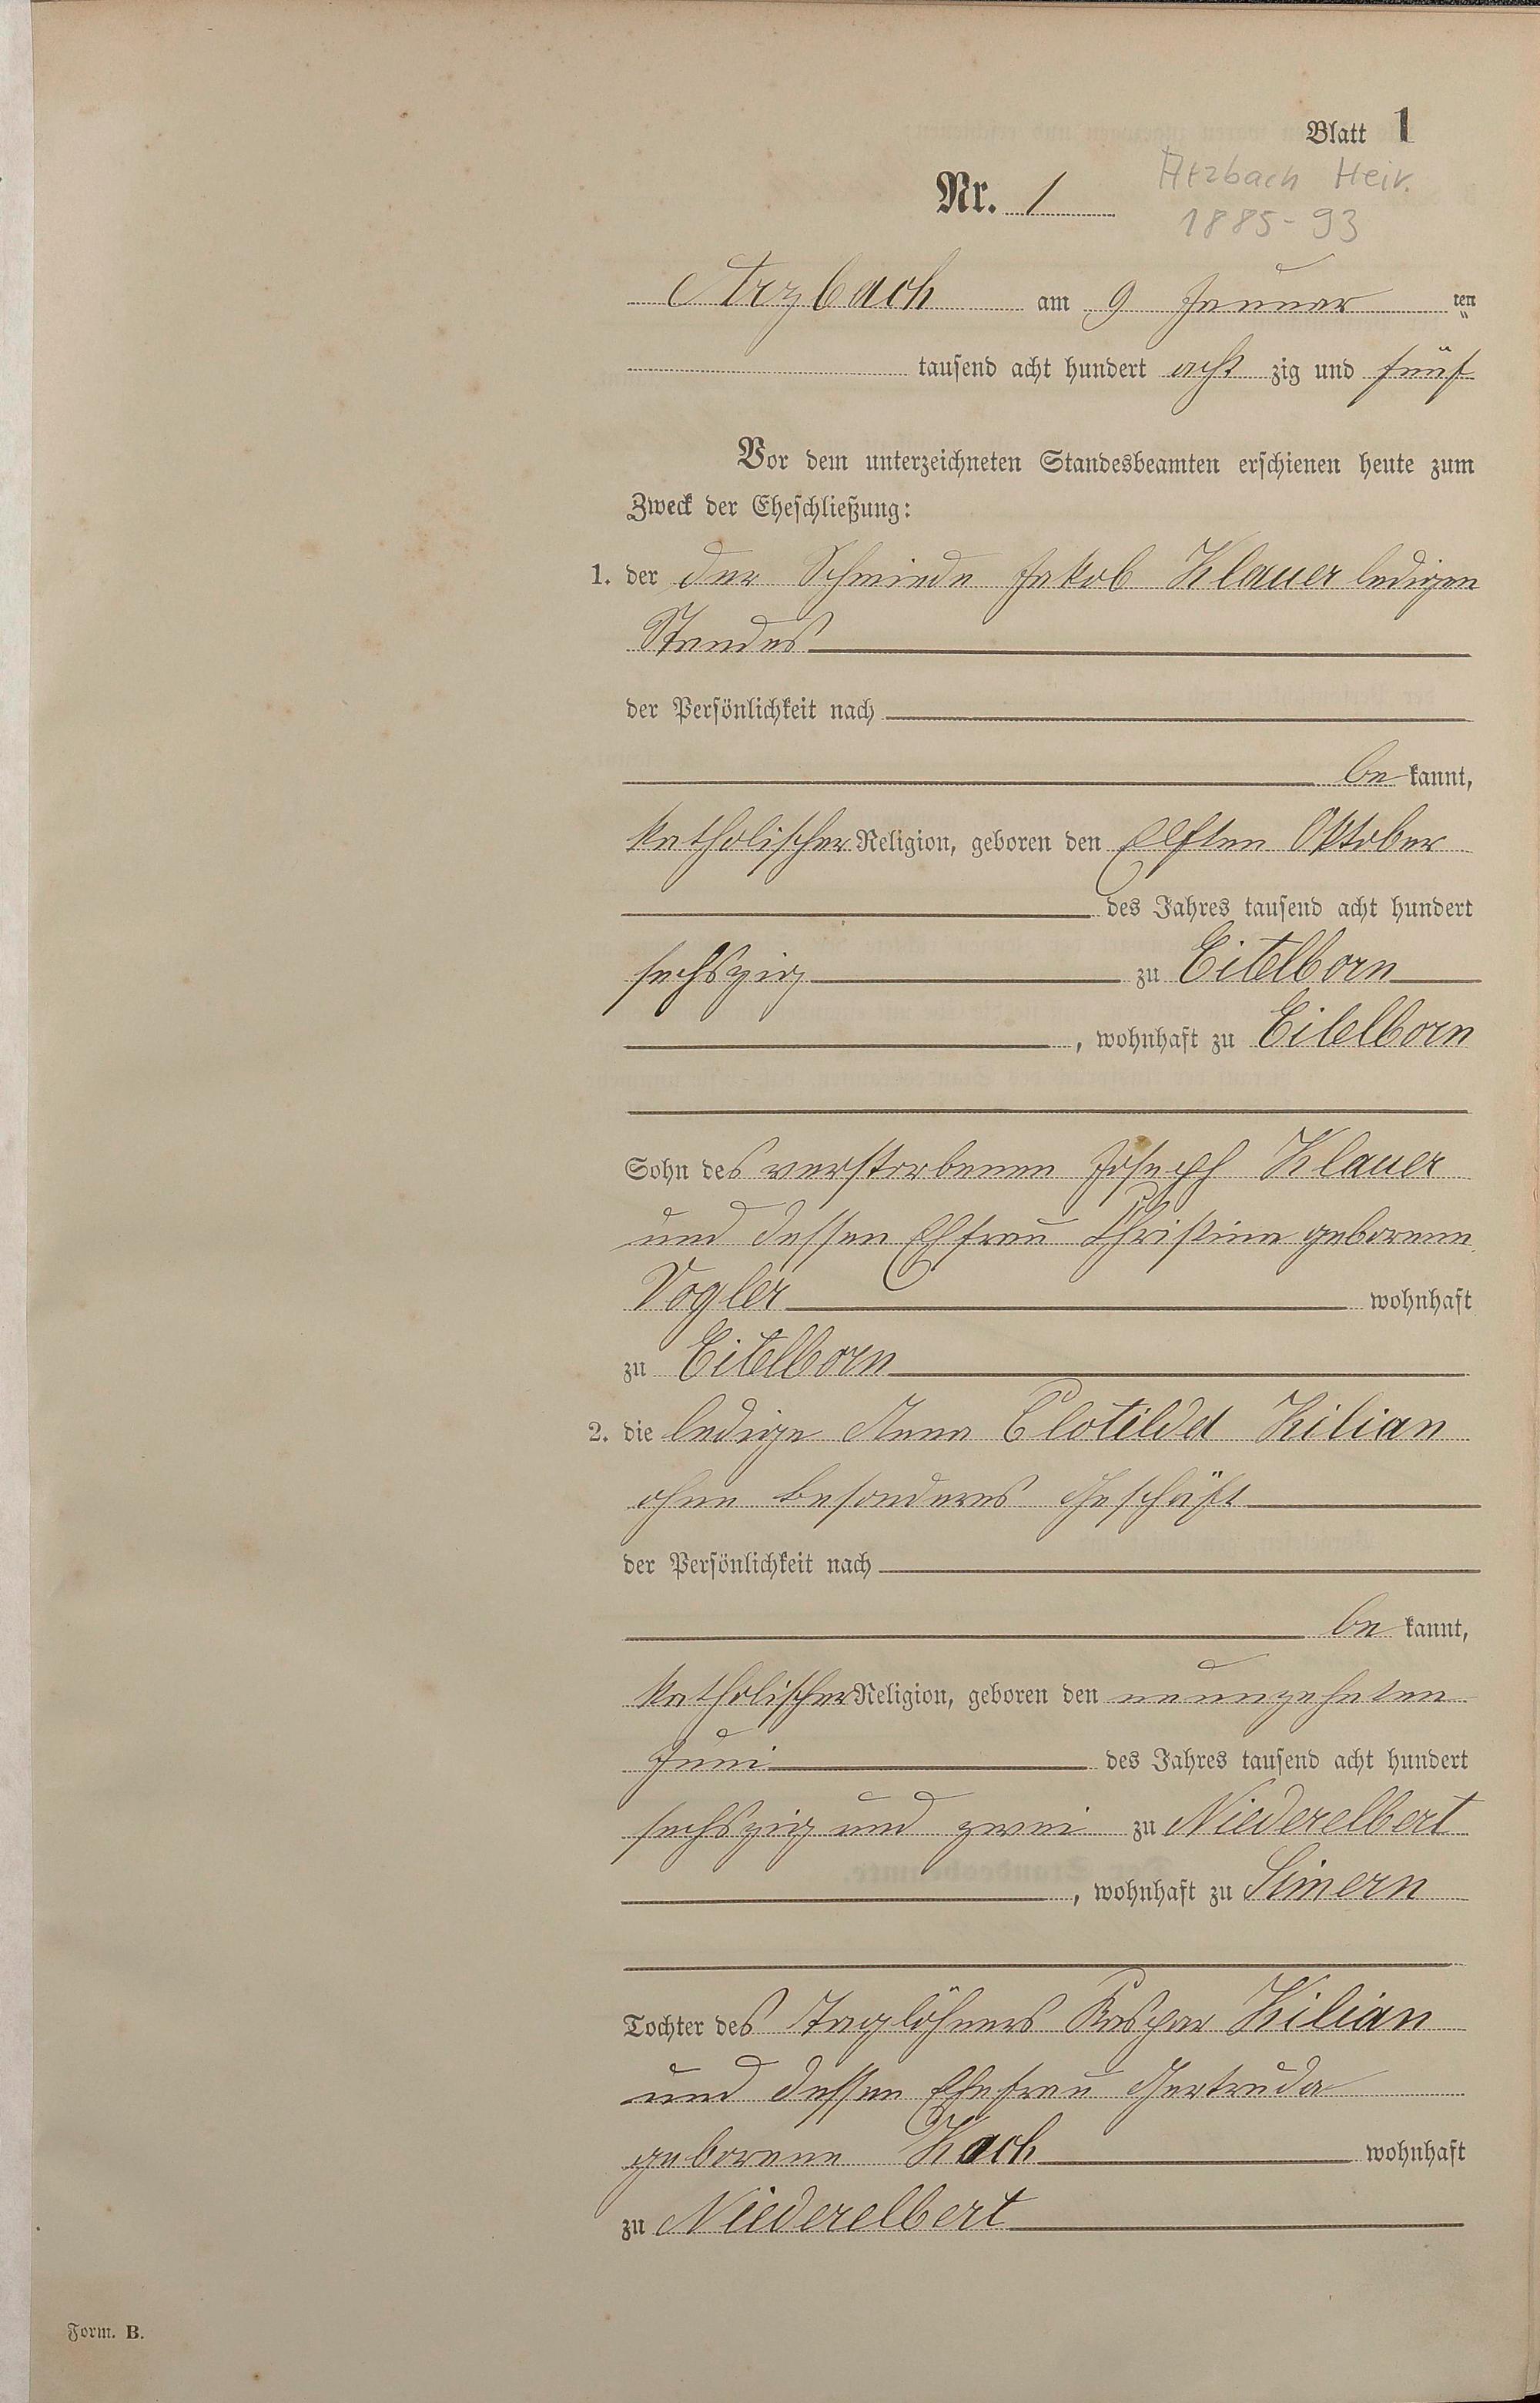 Blatt 1
Arzbach Heir.
Nr. 1
1885-93
Arzbach am 9 Januar ten
tausend acht hundert acht zig und fünf
Vor dem unterzeichneten Standesbeamten erschienen heute zum
Zweck der Eheschließung:
1. der der Schmiede Jakob Klauer ledigen
Standes
der Persönlichkeit nach
be kannt,
katholischer Religion, geboren den Elften Oktober
des Jahres tausend acht hundert
sechszig zu Eitelborn
, wohnhaft zu Eitelborn
Sohn des verstorbenen Joseph Klauer
und dessen Ehfrau Christina geborenen
Vogler wohnhaft
zu Eitelborn
2. die ledige Anna Clotilda Kilian
ohne besonderes Geschäft
der Persönlichkeit nach
be kannt,
katholischer Religion, geboren den neunzehnten
Juni des Jahres tausend acht hundert
sechszig und zwei zu Niederelbert
, wohnhaft zu Simern
Tochter des Taglöhners Kaspar Kilian
und dessen Ehefrau Gertruda
geborene Koch wohnhaft
zu Niederelbert
Form. B.